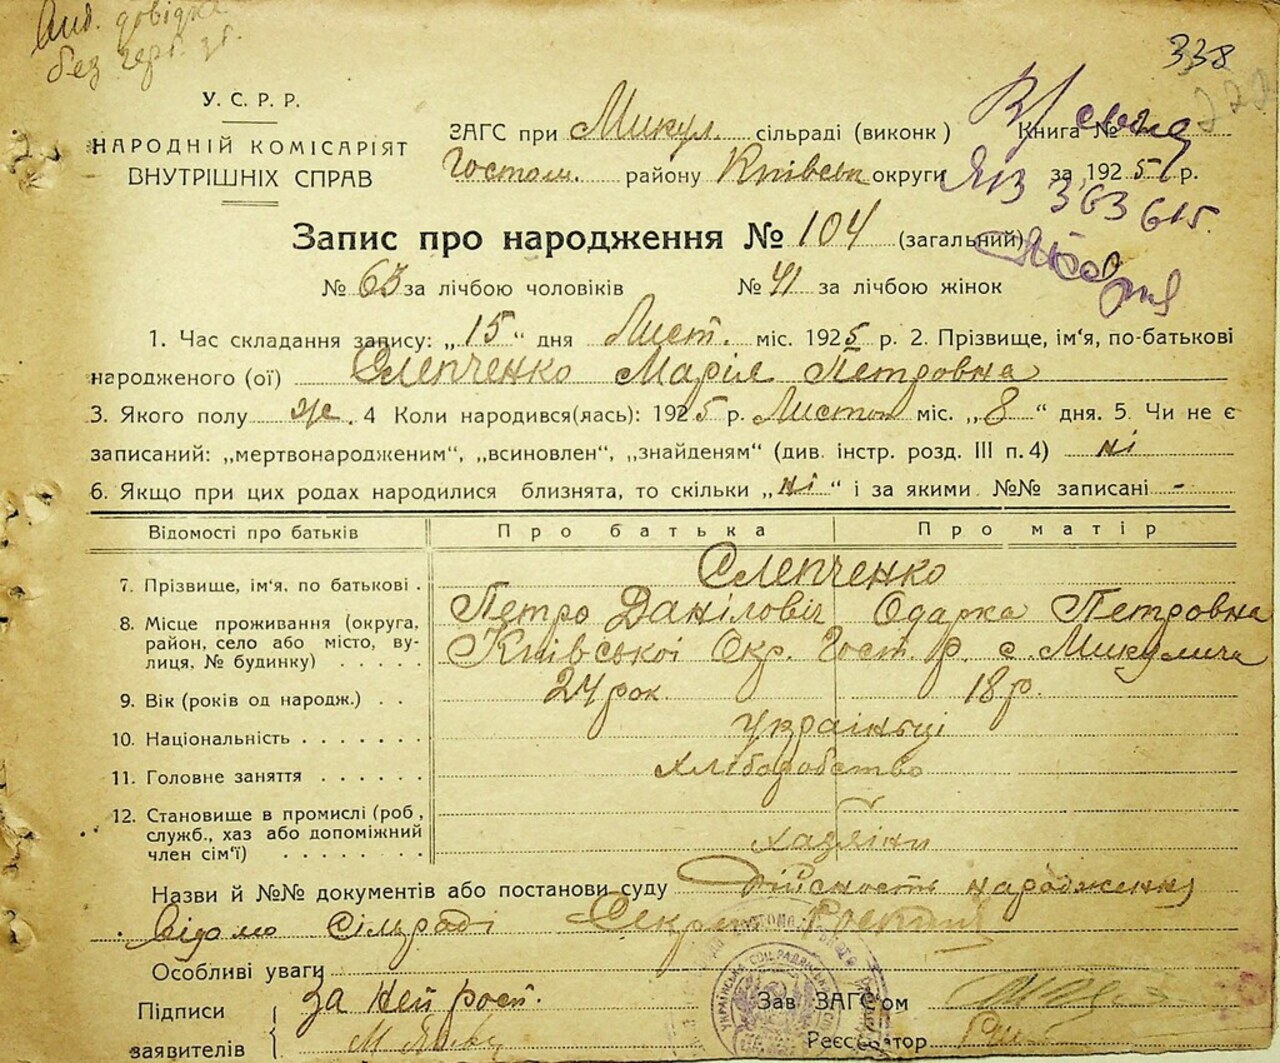 Вид. довідка
без герб. зб.
338
У. С. Р. Р.
НАРОДНІЙ КОМІСАРІЯТ
ВНУТРІШНІХ СПРАВ
ЗАГС при Микул. сільраді (виконк) Книга №
Гостом. району Київськ округи за 1925 р.
ЯІЗ 363615
Запис про народження № 104 (загальний)
№ 63 за лічбою чоловіків № 41 за лічбою жінок
1. Час складання запису: „15" дня Лист. міс. 1925 р. 2. Прізвище, ім'я, по-батькові
народженого (ої) Слепченко Марія Петровна
3. Якого полу ж. 4 Коли народився(лась): 1925 р. Листоп міс. „8" дня. 5. Чи не є
записаний: „мертвонародженим", „всиновлен", „знайденям" (див. інстр. розд. III п. 4) ні
6. Якщо при цих родах народилися близнята, то скільки „ні" і за якими №№ записані -
Відомості про батьків Про батька Про матір
7. Прізвище, ім'я, по батькові . Слепченко
Петро Данілович Одарка Петровна
8. Місце проживання (округа,
район, село або місто, ву-
лиця, № будинку) . . . . . Київськоі Окр. Гост. р. с. Микулича
9. Вік (років од народж.) . . 24 рок 18 р.
10. Національність . . . . . . . Украіньці
11. Головне заняття . . . . . . хліборобство
12. Становище в промислі (роб,
служб., хаз або допоміжний
член сім'ї) . . . . . . . . хазяіни
Назви й №№ документів або постанови суду Дійсность народження
відомо Сільраді Секрет
Особливі уваги
Підписи За неп росп.
заявителів
Зав ЗАГС'ом
Реєстратор